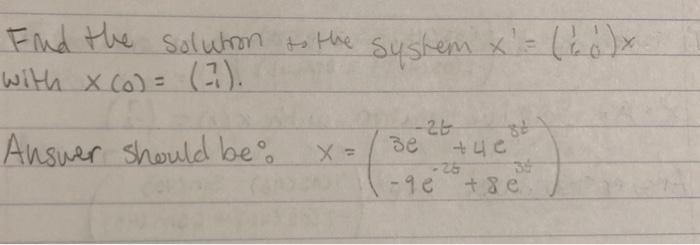 Find the solution to the system x' = (1 1 / 6 0) x
with x(0) = (7 / -1).
Answer should be: x = (3e^-2t + 4e^3t / -9e^-2t + 8e^3t)